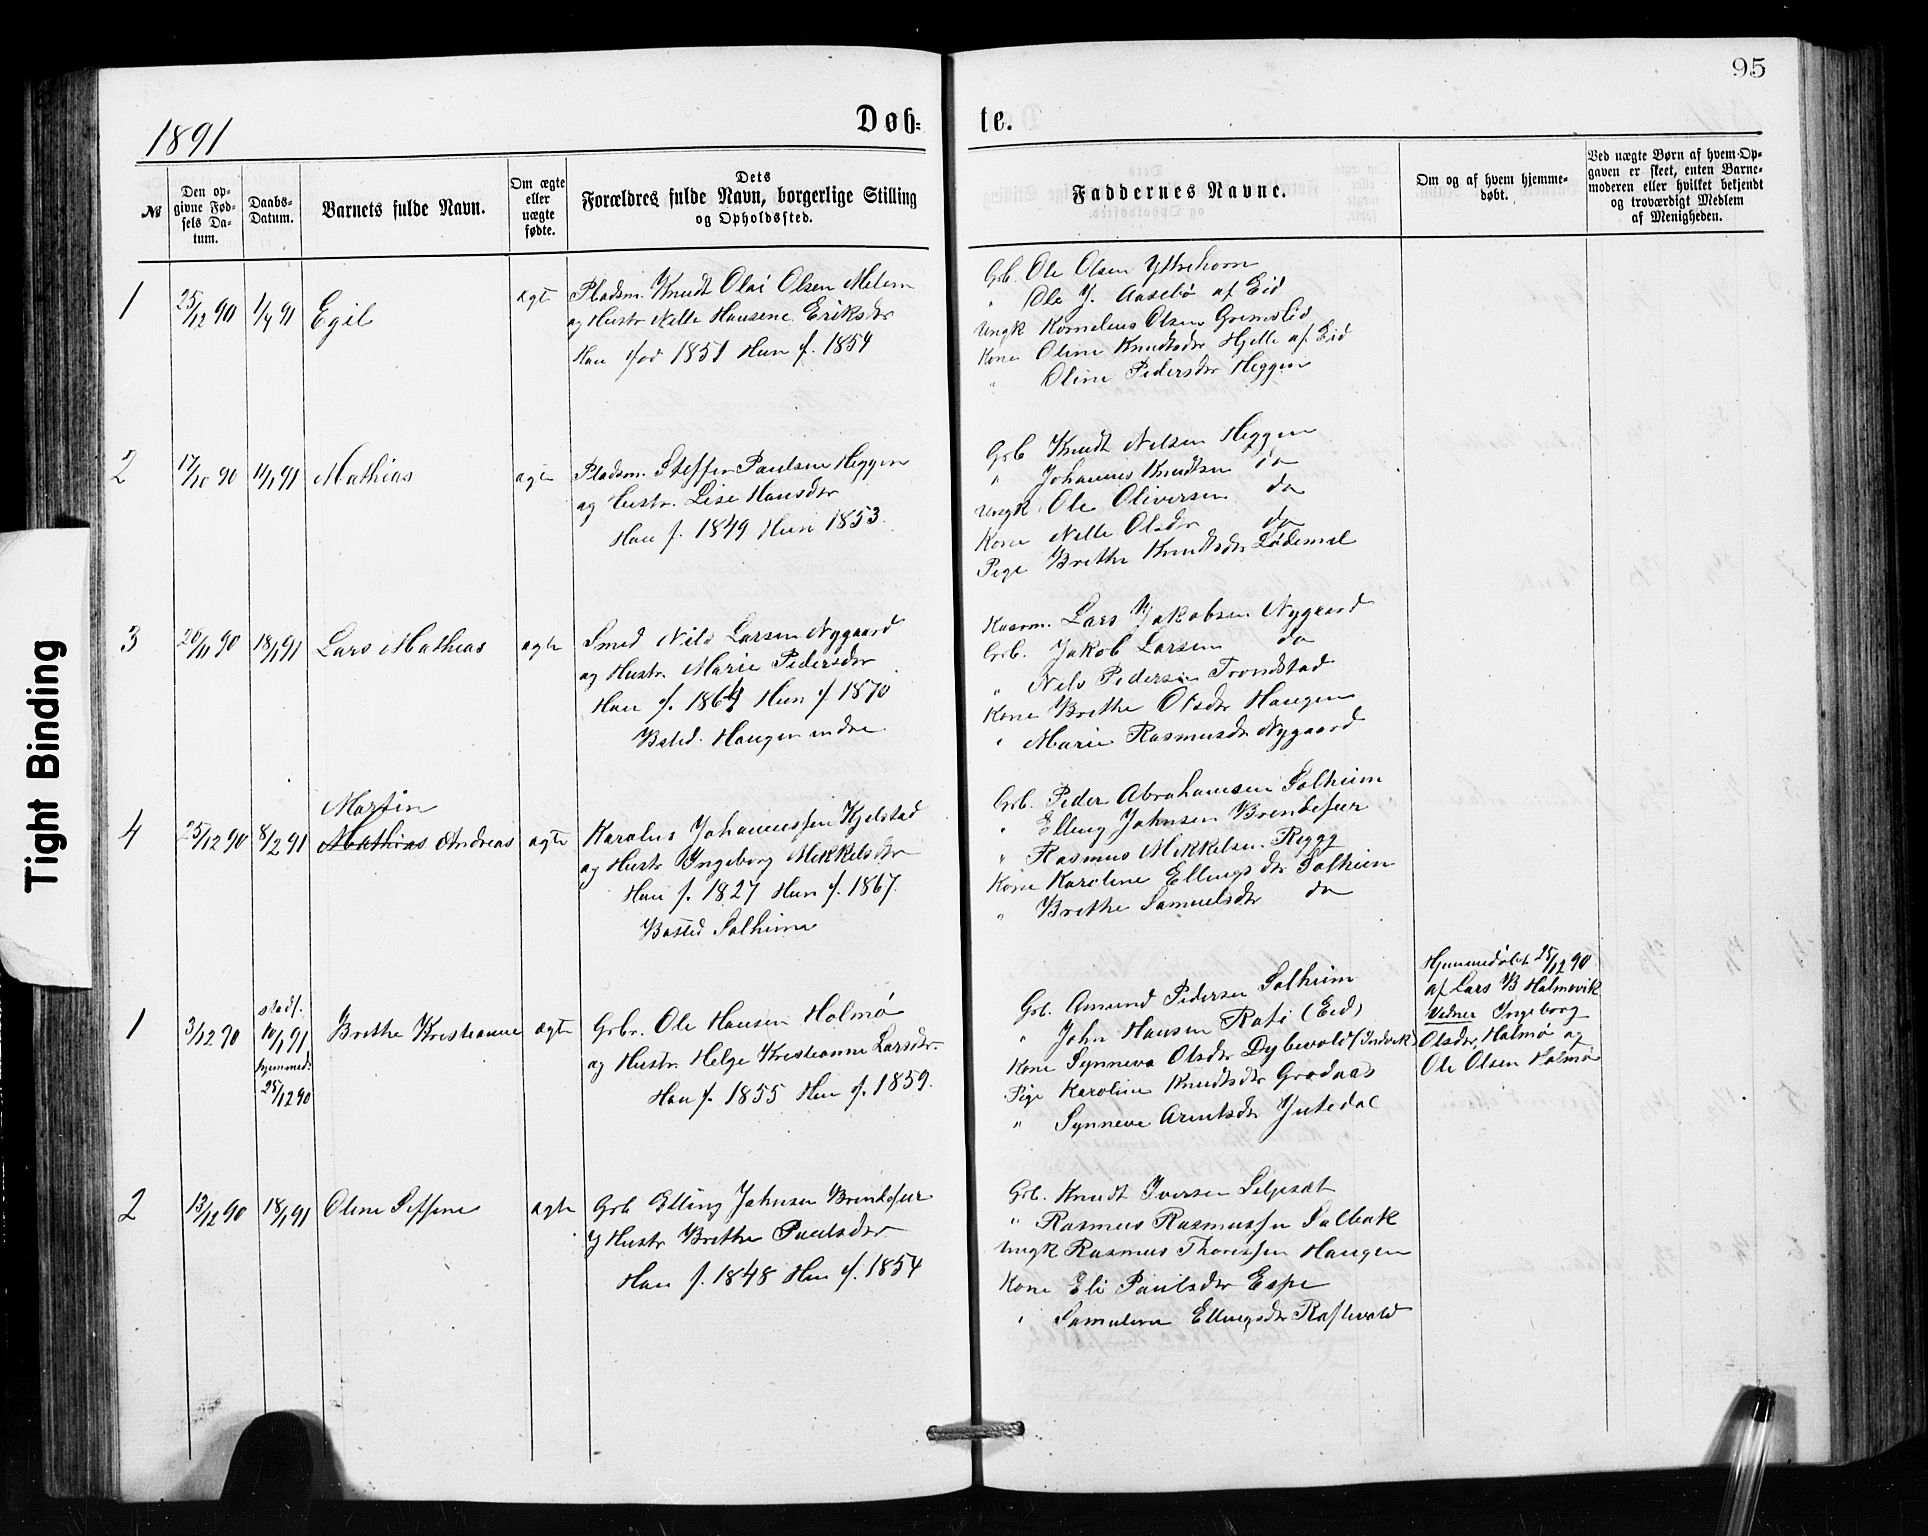 95
1891
Døb=
te.
№
Den opgivne Fødsels Datum.
Daabs-Datum.
Barnets fulde Navn.
Om ægte eller uægte fødte.
Dets Forældres fulde Navn, borgerlige Stilling og Opholdssted.
Faddernes Navne.
Om og af hvem hjemmedøbt.
Ved uægte Børn af hvem Opgaven er skeet, enten Barnemoderen eller hvilket bekjendt og troværdigt Medlem af Menigheden.
1
25/12 90
1/4 91
Egil
ægte
Pladsm. Knudt Olai Olsen Melem
og Hustr Nille Hansene Eriksdr
Han fød 1851 Hun f. 1854
Grb. Ole Olsen Yttrehorn
" Ole J. Aaselø af Eid
Ungk Kornelius Olsen Gremslid
Kone Oline Knudtsdr Hjelle af Eid
" Oline Pedersdr Heggen
2
17/10 90
11/1 91
Mathias
ægte
Pladsm. Steffen Paulsen Heggen
og Hustr. Lise Hansdr
Han f. 1849 Hun 1853
Grb Knudt Nilsen Heggen
" Johannes Knudtsen do
Ungk Ole Oliversen do
Kone Nille Olsdr do
Pige Brithe Knudtsdr Lødemel
3
20/11 90
18/1 91
Lars Mathias
ægte
Smed Nils Larsen Nygaard
og Hustr. Marie Pedersdr
Han f. 1864 Hun f 1870
Bsted. Haugen indre
Kaarm. Lars Jakobsen Nygaard
Grb. Jakob Larsen do
" Nils Pedersen Trondstad
Kone Brithe Olsdr Haugen
" Marie Rasmusdr Nygaard
4
25/12 90
8/2 91
Martin
Mathias Andreas
ægte
Karolus Johannessen Kjelstad
og Hustr Ingeborg Mikkelsdr
Han f. 1827 Hun f. 1867.
Bosted Solheim
Grb. Peder Abrahamsen Solheim
" Elling Johnsen Brendefur
" Rasmus Mikkelsen Rygg
Kone Karoline Ellingsdr Solheim
" Brithe Samuelsdr do
1
3/12 90
stadf.
10/1 91
hjemmed.
25/12 90
Brithe Kristianne
ægte
Grbr. Ole Hansen Holmø
og Hustr. Helge Kristianne Larsdr.
Han f. 1855 Hun f. 1859.
Grb. Amund Pedersen Solheim
" John Hansen Rafi (Eid)
Kone Synneva Olsdr Dybevold (Indvik)
Pige Karoline Knudtsdr Grodaas
" Synneve Arentsdr Jutedal
Hjemmedøbt 25/12 90
af Lars B Holmøvik
Vidner Ingeborg
Olsdr. Holmø og
Ole Olsen Holmø
2
13/12 90
18/1 91
Oline Siffene
ægte
Grb Elling Johnsen Brendefur
og Hustr Brithe Paulsdr
Han f. 1848 Hun f. 1854
Grb. Knudt Iversen Seljeset
" Rasmus Rasmussen Solbak
Ungk Rasmus Thoressen Haugen
Kone Eli Paulsdr Espe
" Samuline Ellingsdr Raftevold
Tight Binding